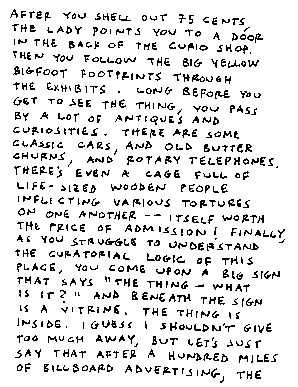 AFTER YOU SHELL OUT 75 CENTS
THE LADY POINTS YOU TO A DOOR
IN THE BACK OF THE CURIO SHOP.
THEN YOU FOLLOW THE BIG YELLOW
BIGFOOT FOOTPRINTS THROUGH
THE EXHIBITS. LONG BEFORE YOU
GET TO SEE THE THING, YOU PASS
BY A LOT OF ANTIQUES AND
CURIOSITIES. THERE ARE SOME
CLASSIC CARS, AND OLD BUTTER
CHURNS, AND ROTARY TELEPHONES.
THERE'S EVEN A CAGE FULL OF
LIFE-SIZED WOODEN PEOPLE
INFLICTING VARIOUS TORTURES
ON ONE ANOTHER -- ITSELF WORTH
THE PRICE OF ADMISSION! FINALLY,
AS YOU STRUGGLE TO UNDERSTAND
THE CURATORIAL LOGIC OF THIS
PLACE, YOU COME UPON A BIG SIGN
THAT SAYS "THE THING - WHAT
IS IT?" AND BENEATH THE SIGN
IS A VITRINE. THE THING IS
INSIDE. I GUESS I SHOULDN'T GIVE
TOO MUCH AWAY, BUT LET'S JUST
SAY THAT AFTER A HUNDRED MILES
OF BILLBOARD ADVERTISING, THE